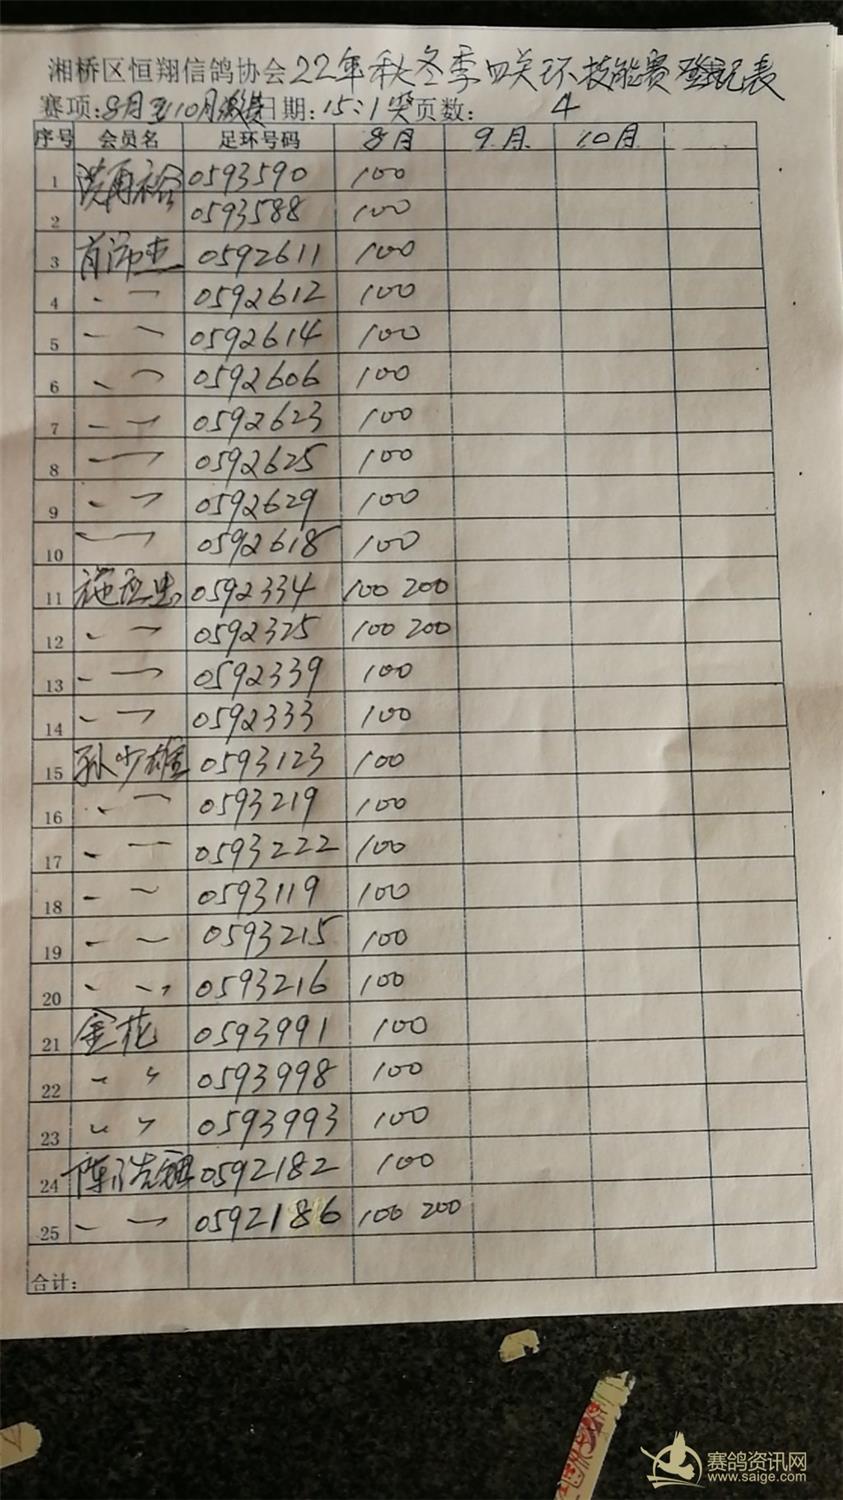 湘桥区恒翔信鸽协会22年秋冬季四关环技能赛登记表
赛项:8月至10月缴费日期:15:1奖页数: 4
序号 会员名 足环号码 8月 9月 10月
1 洪再裕 0593590 100
2 0593588 100
3 肖沛杰 0592611 100
4 〃 0592612 100
5 〃 0592614 100
6 〃 0592606 100
7 〃 0592623 100
8 〃 0592625 100
9 〃 0592629 100
10 〃 0592618 100
11 施 0592334 100 200
12 〃 0592325 100 200
13 〃 0592339 100
14 〃 0592333 100
15 孙少雄 0593123 100
16 〃 0593219 100
17 〃 0593222 100
18 〃 0593119 100
19 〃 0593215 100
20 〃 0593216 100
21 金花 0593991 100
22 〃 0593998 100
23 〃 0593993 100
24 陈浩 0592182 100
25 〃 0592186 100 200
合计:
赛鸽资讯网
www.saige.com